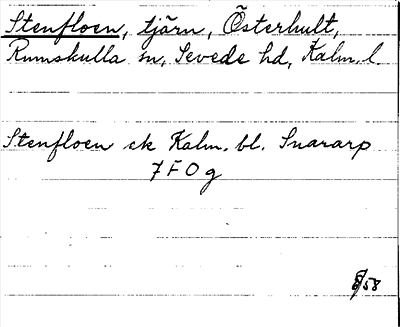 Stenfloen, tjärn, Österhult,
Rumskulla sn, Sevede hd, Kalm. l.
Stenfloen ek Kalm. bl. Snararp
7 F O g
58